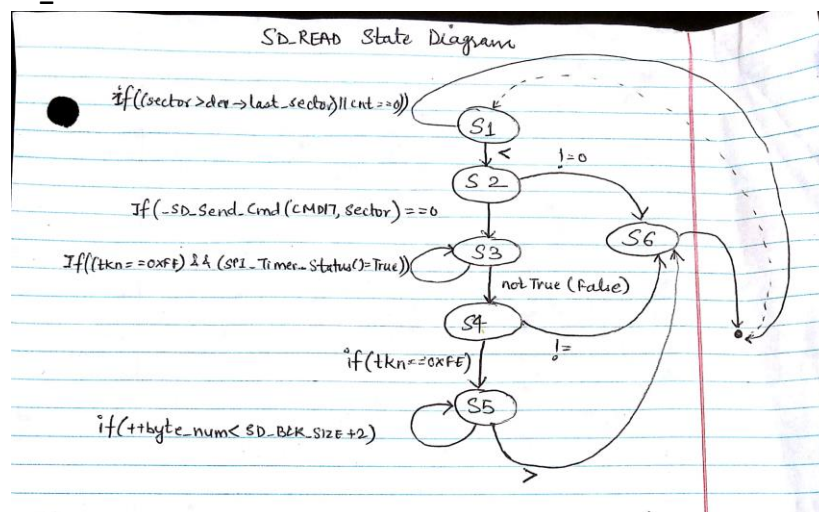 SD_READ State Diagram
if((sector>dev→last_sector)||cnt==0))
S1
<
!=0
S2
If(_SD_Send_Cmd(CMD17, Sector)==0
S6
S3
If((tkn==0XFF) && (SPI_Timer_Status()=True))
not True (False)
S4
!=
if(tkn==0XFE)
S5
if(++byte_num< SD_BLK_SIZE+2)
>